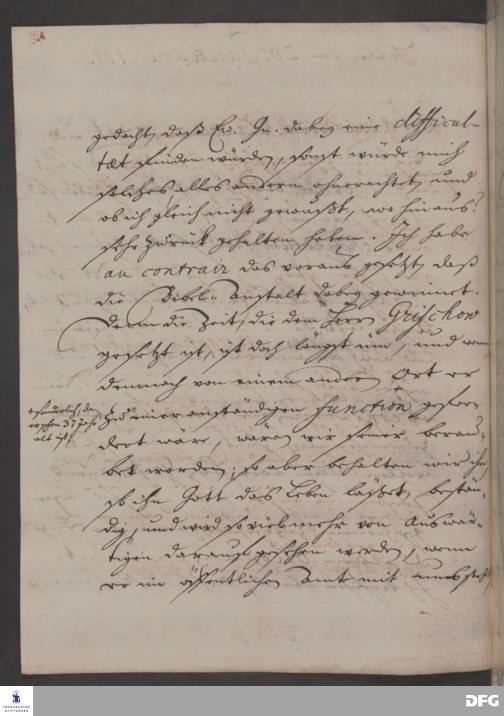 gedacht, daß Ew. Gn. dabey eine difficul-
tæt finden würden, sonst würde mich
solches, alles andern ohnerachtet, und
ob ich gleich nicht gewußt, wo hinaus?
zurück gehalten haben. Ich habe
au contrair das voraus gesetzt, daß
die Bibel-Anstalt dabey gewinnet.
Denn die Zeit, die dem Herrn Grischow
gesetzt ist, ist doch längst um, und wenn
demnach von einem andern Ort er
zu einer anständigen function + gefor-
dert wäre, wären wir seiner berau-
bet worden; so aber behalten wir ihn
so ihn Gott das Leben läßet, bestän-
dig, und wird so viel mehr von Auswär-
tigen darauf gesehen werden, wenn
er im öffentlichen Amte mit uns steht
+ sonderlich, da
er schon 37 Jahr
alt ist,
FRANCKESCHE
STIFTUNGEN
DFG